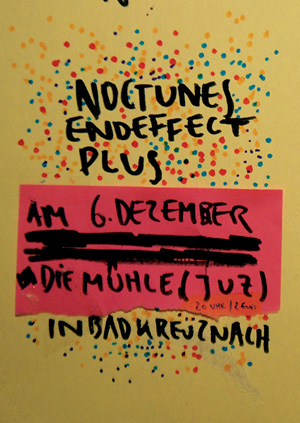 NOCTUNES
ENDEFFECT
PLUS
AM 6. DEZEMBER
DIE MÜHLE (JUZ)
20 UHR / 2 Euro
IN BAD KREUZNACH